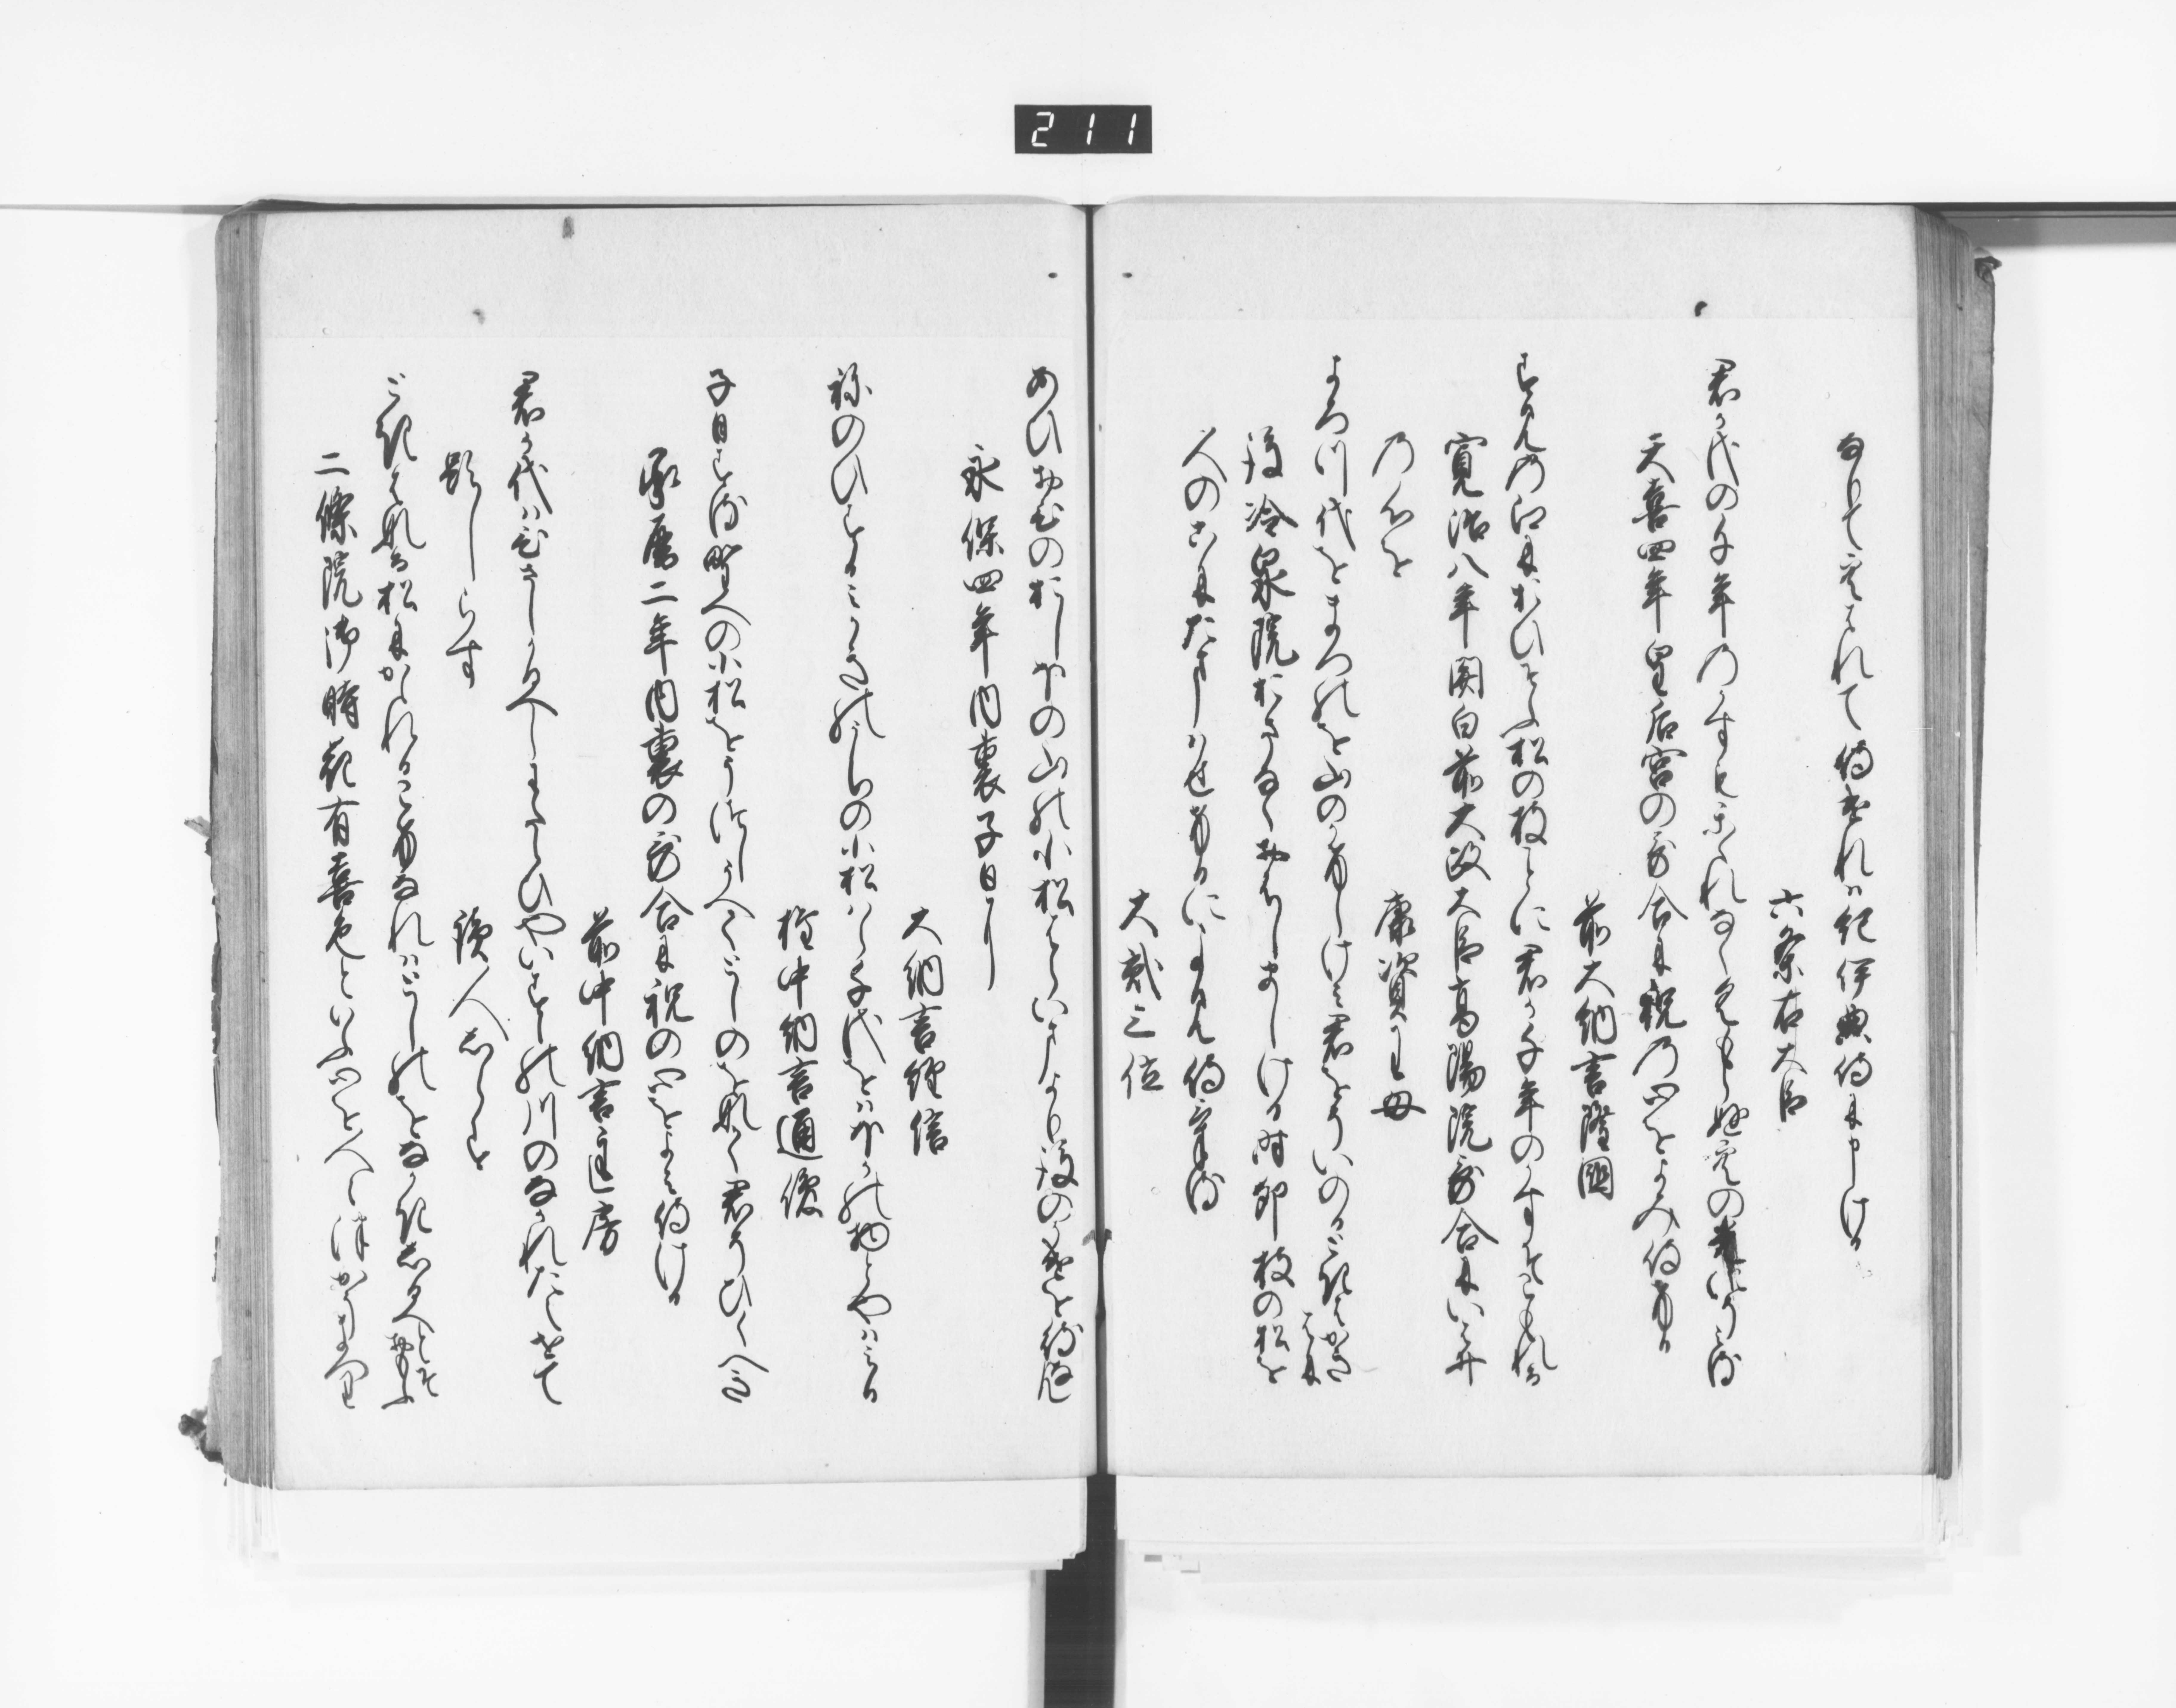 なりて空はれて侍けれは紀伊典侍に申ける
六条右大臣
君か代の千年のかすもかくれなくくもらぬ空の光にそみる
天喜四年皇后宮の哥合に祝の心をよみ侍ける
前大納言隆國
すみの江におひそふ松の枝ことに君か千年のかすそこもれる
寛治八年関白前太政大臣高陽院哥合にいはひ
の心を　康資王母
よろつ代をまつのを山のかけしけみ君をそいのるときはかきはに
後冷泉院おさなくおはしましける時卯杖の松を
人のこにたまはせけるによみ侍ける
大貳三位
あひおひのをしほの山の小松はらいまより後のかけを待なん
永保四年内裏子日に
大納言経信
ねのひするみかきのうちの小松はら千代をはほかの物とやはみる
権中納言通俊
子日する野への小松をうつしうへてとしのをなかく君そひくへき
承暦二年内裏の哥合に祝の心をよみ侍ける
前中納言匡房
君か代はひさしかるへしわたらひやいすゝの川のなかれたえせて
題しらす　読人しらす
ときはなる松にかゝれるこけなれはとしのをなかきしるへとそおもふ
二條院御時花有喜色といふ心を人〻つかうまつり